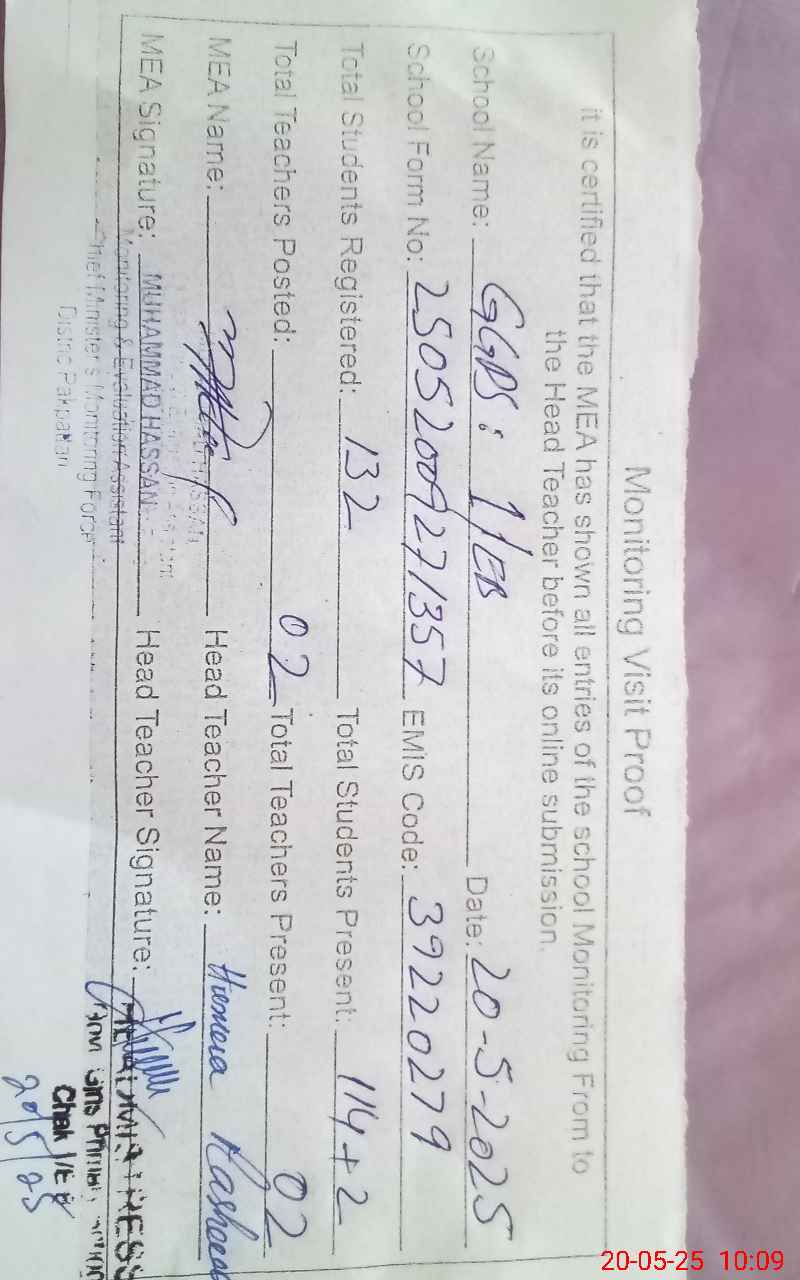 Monitoring Visit Proof
it is certified that the MEA has shown all entries of the school Monitoring From to
the Head Teacher before its online submission.
School Name: GGPS: 1/EB Date: 20-5-2025
School Form No: 25052009271357 EMIS Code: 39220279
Total Students Registered: 132 Total Students Present: 114+2
Total Teachers Posted: 02 Total Teachers Present: 02
MEA Name: Head Teacher Name: Humera Rasheed
MEA Signature: MUHAMMAD HASSAN Head Teacher Signature:
Monitoring & Evaluation Assistant
Chief Minister's Monitoring Force
Distric Pakpattan
HEADMISTRESS
Govt Girls Primary
Chak 1/EB
20/5/25
20-05-25 10:09